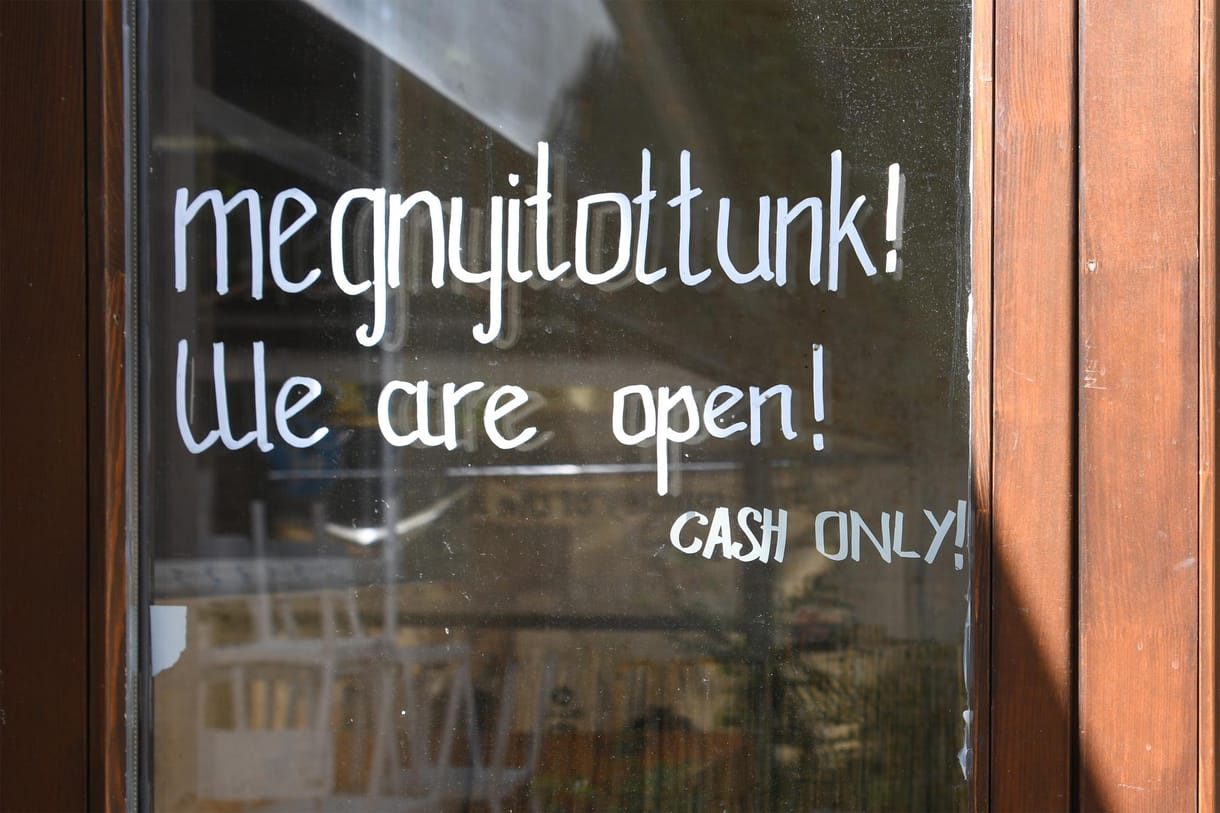 megnyitottunk!
We are open!
CASH ONLY!